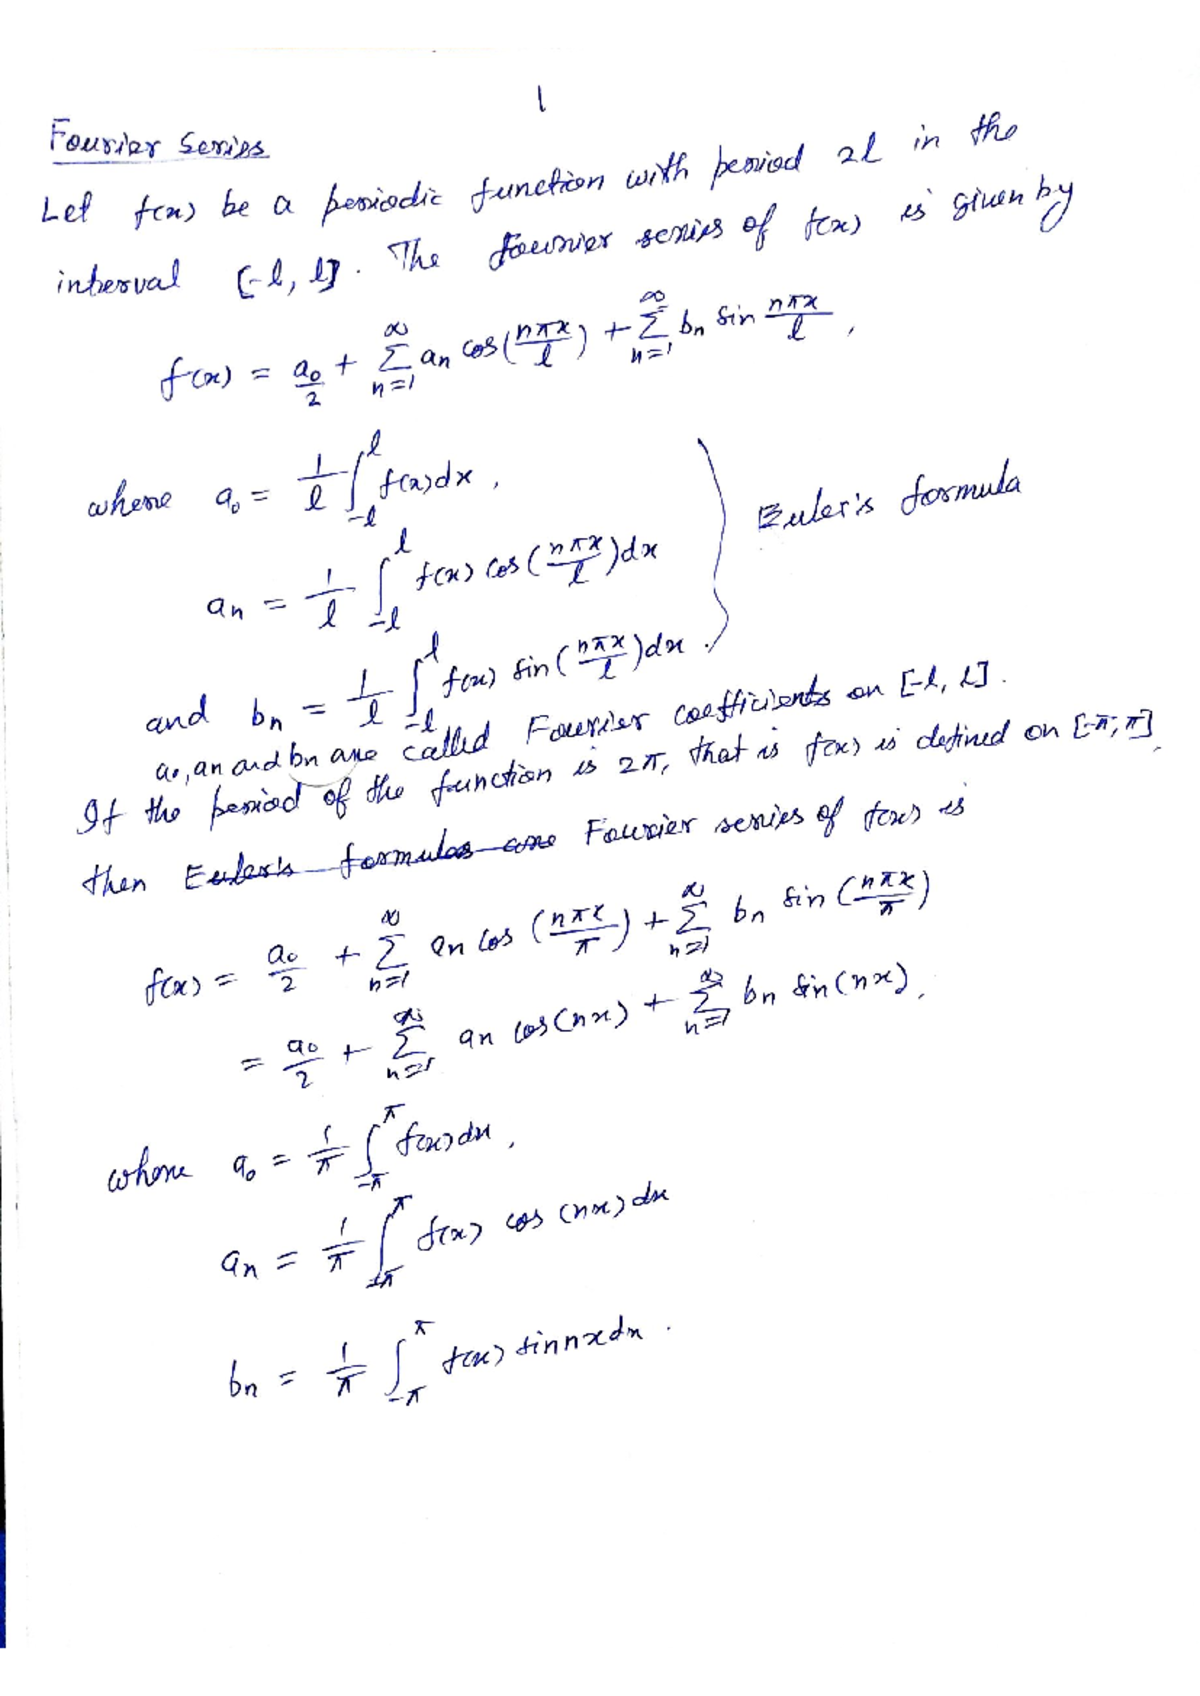 1
Fourier Series
Let f(x) be a periodic function with period 2l in the
interval [-l, l]. The fourier series of f(x) is given by
f(x) = a₀/2 + ∑_{n=1}^{∞} aₙ cos(nπx/l) + ∑_{n=1}^{∞} bₙ sin nπx/l,
where a₀ = 1/l ∫_{-l}^{l} f(x)dx,
aₙ = 1/l ∫_{-l}^{l} f(x) cos(nπx/l)dx
Euler's formula
and bₙ = 1/l ∫_{-l}^{l} f(x) sin(nπx/l)dx.
a₀, aₙ and bₙ are called Fourier coefficients on [-l, l].
If the period of the function is 2π, that is f(x) is defined on [-π, π]
then Euler's formulas are Fourier series of f(x) is
f(x) = a₀/2 + ∑_{n=1}^{∞} aₙ cos(nπx/π) + ∑_{n=1}^{∞} bₙ sin(nπx/π)
= a₀/2 + ∑_{n=1}^{∞} aₙ cos(nx) + ∑_{n=1}^{∞} bₙ sin(nx),
where a₀ = 1/π ∫_{-π}^{π} f(x)dx,
aₙ = 1/π ∫_{-π}^{π} f(x) cos(nx)dx
bₙ = 1/π ∫_{-π}^{π} f(x) sinnxdx.